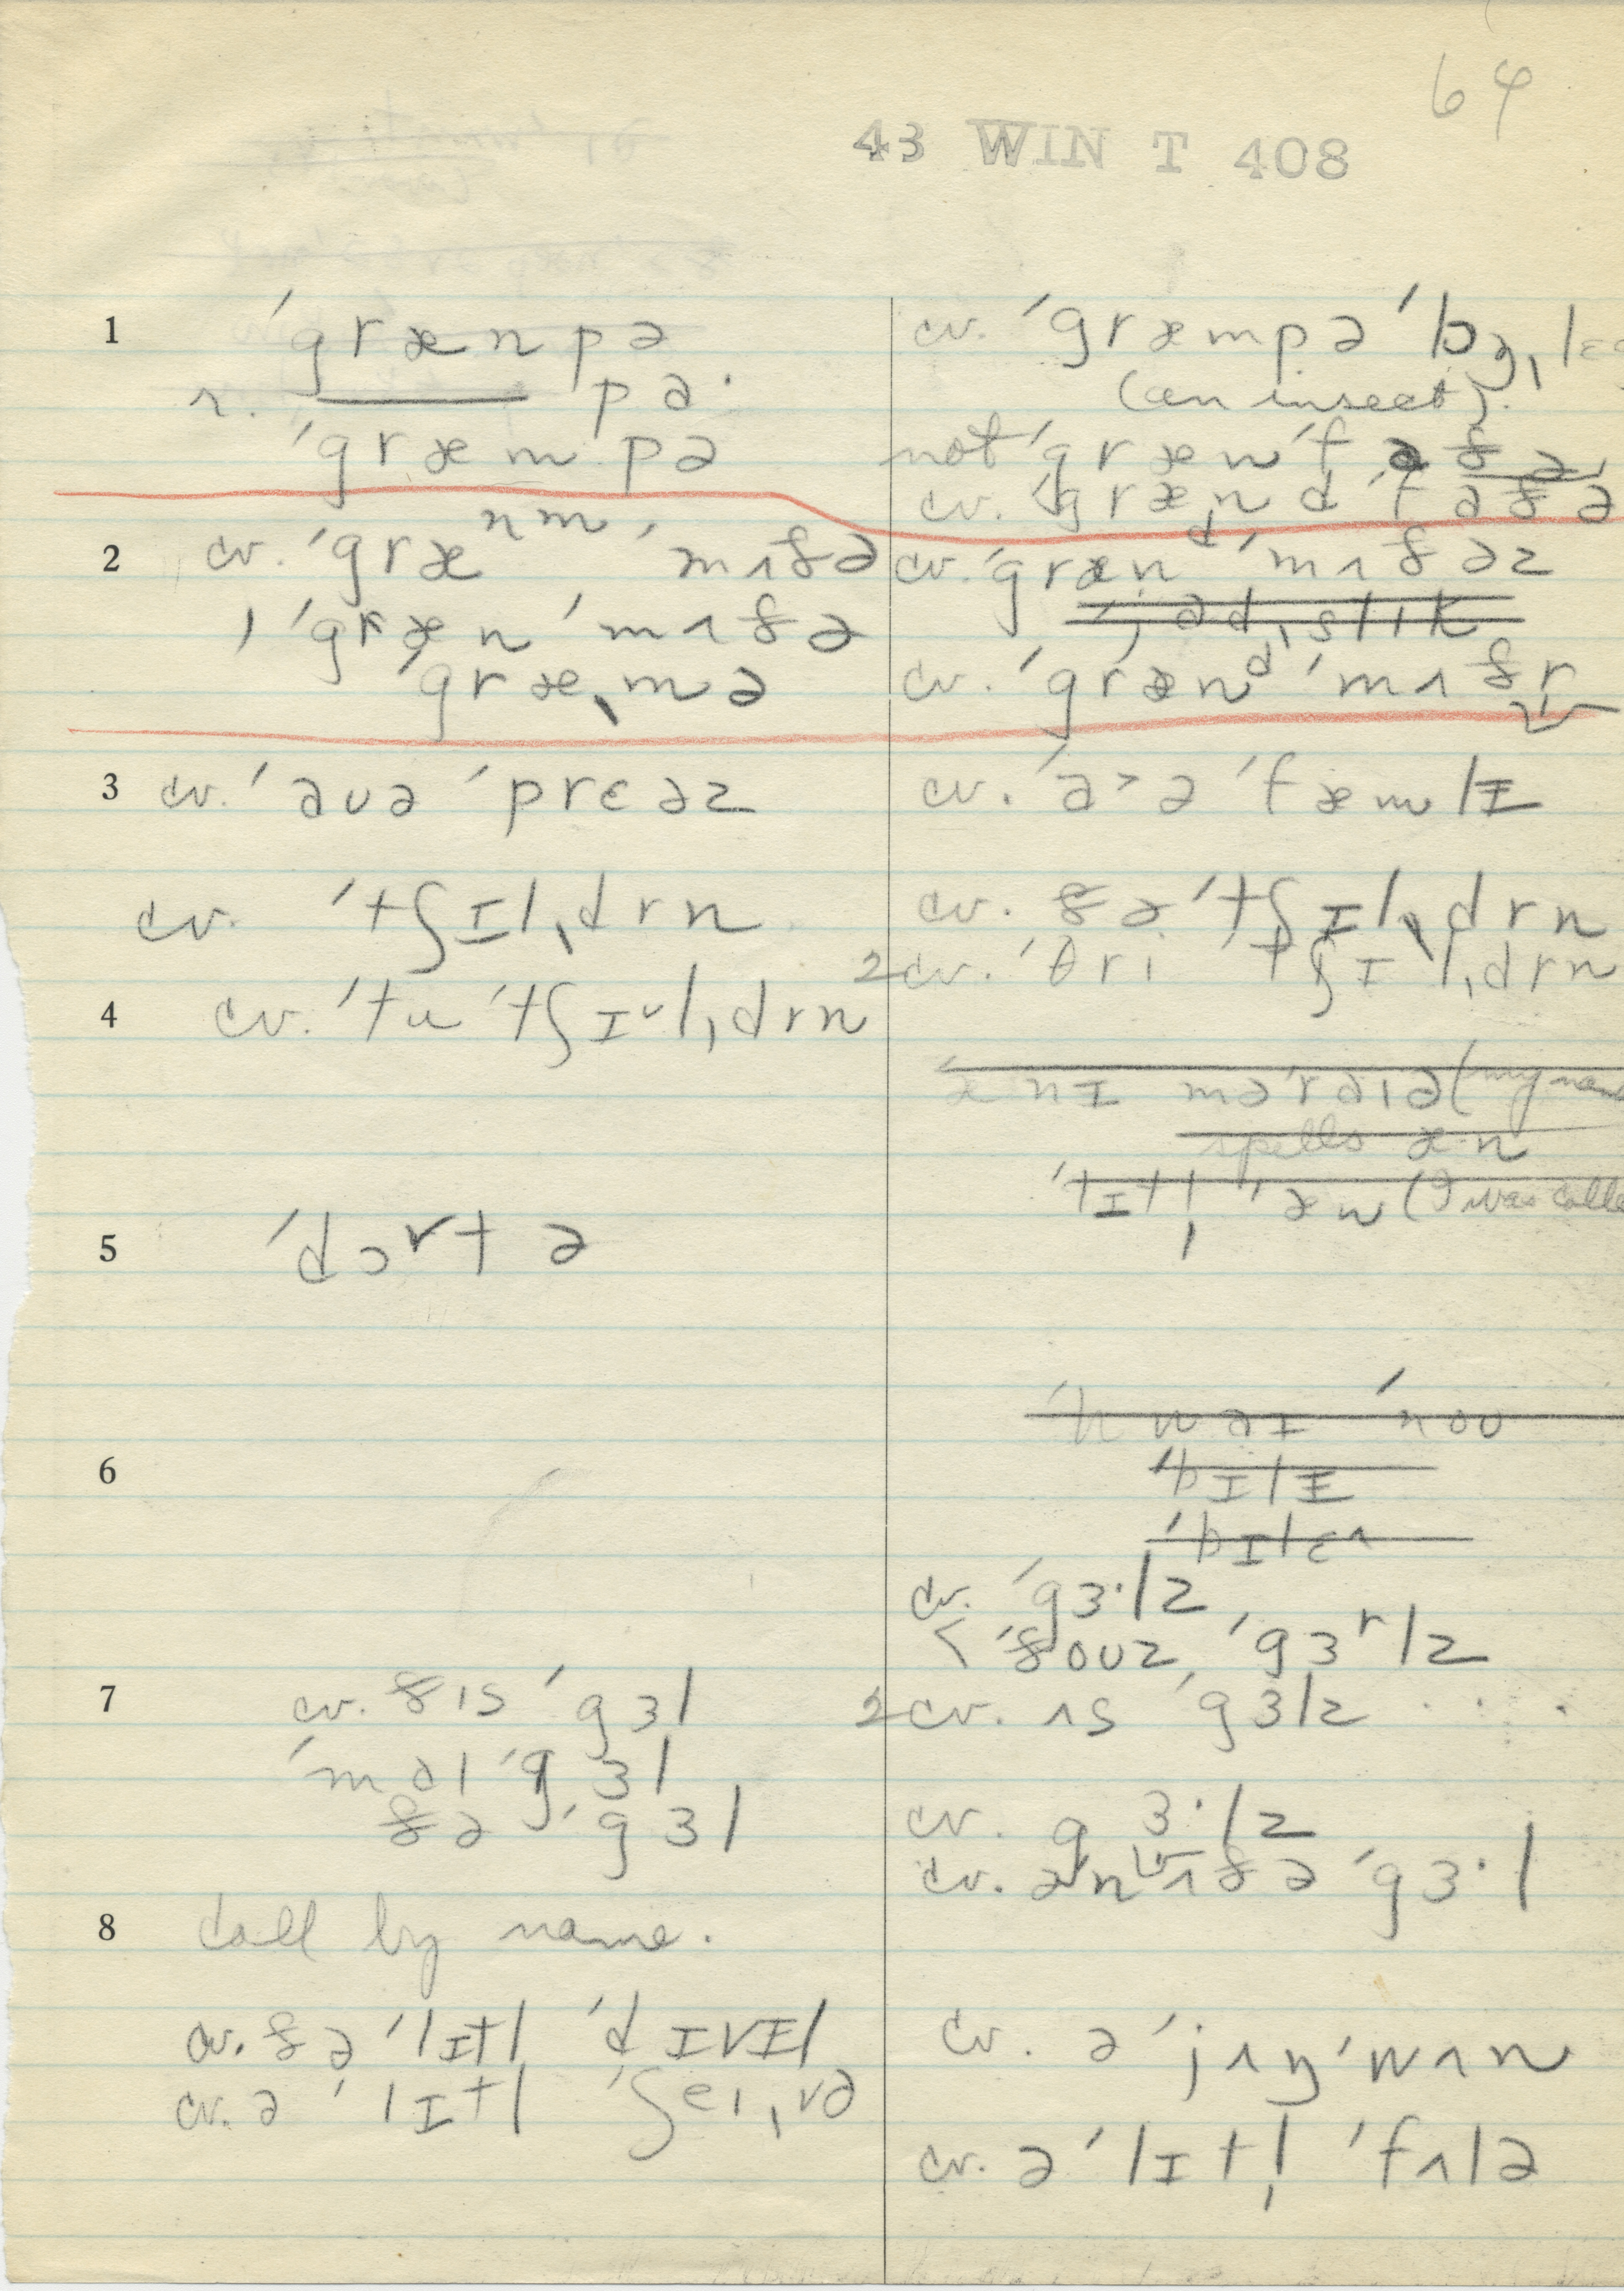 64
43 WIN T 408
1
ˈgrænpə
r. ——— pə·
ˈgræmpə
cv. ˈgræmpə ˈlɔŋˌlɛg
(an insect).
not ˈgrænˈfɑðə,
cv. ˈgrændˈfɑðə
2
cv. ˈgræⁿᵐˈmʌðə
, ˈgrænˈmʌðə
ˈgræˌmə
cv. ˈgrænᵈˈmʌðəz
cv. ˈgrænᵈˈmʌðr
3
cv. ˈaʊə ˈprɛəz
cv. ˈa>ə ˈfæmlɪ
cv. ˈtʃɪlˌdrn
cv. ðə ˈtʃɪlˌdrn
2 cv. ˈθri ˈtʃɪlˌdrn
4
cv. ˈtu ˈtʃɪᵘlˌdrn
ænɪ məˈraɪə (my name
spells æn
ˈtɪtl̩ ˈæn (I was calle
5
ˈdɔʳtə
6
ˈhwaɪ ˈnoʊ
ˈbɪlɪ
cv. ˈgɜ·lz
< ˈðoʊz, ˈgɜʳlz
7
cv. ðɪs ˈgɜl
ˈmaɪ ˈgɜl
ðə ˈgɜl
2 cv. ʌs ˈgɜlz
cv. gɜ·lz
cv. əˈnʌðə ˈgɜ·l
8
Call by name.
cv. ðə ˈlɪtl ˈdɪvɪl
cv. ə ˈlɪtl ˈʃeɪˌvə
cv. ə ˈjʌŋ ˈwʌn
cv. ə ˈlɪtl̩ ˈfʌlə